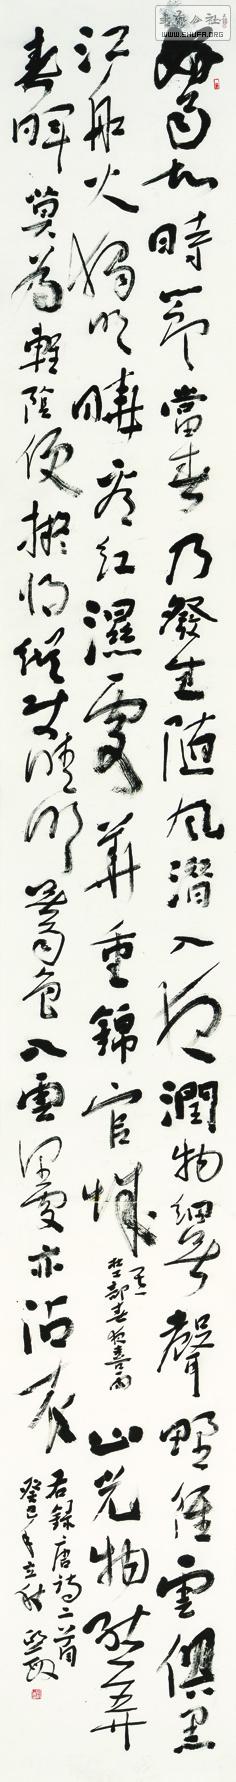 好雨知時節當春乃發生随風潛入夜潤物細無聲野徑雲俱黑
江船火獨明曉看紅濕處華重錦官城
杜工部春夜喜雨
山光物態弄
春暉莫為輕陰便擬歸縱使晴明無雨色入雲深處亦沾衣
右録唐詩二首
癸巳年立秋
WWW.SHUFA.ORG